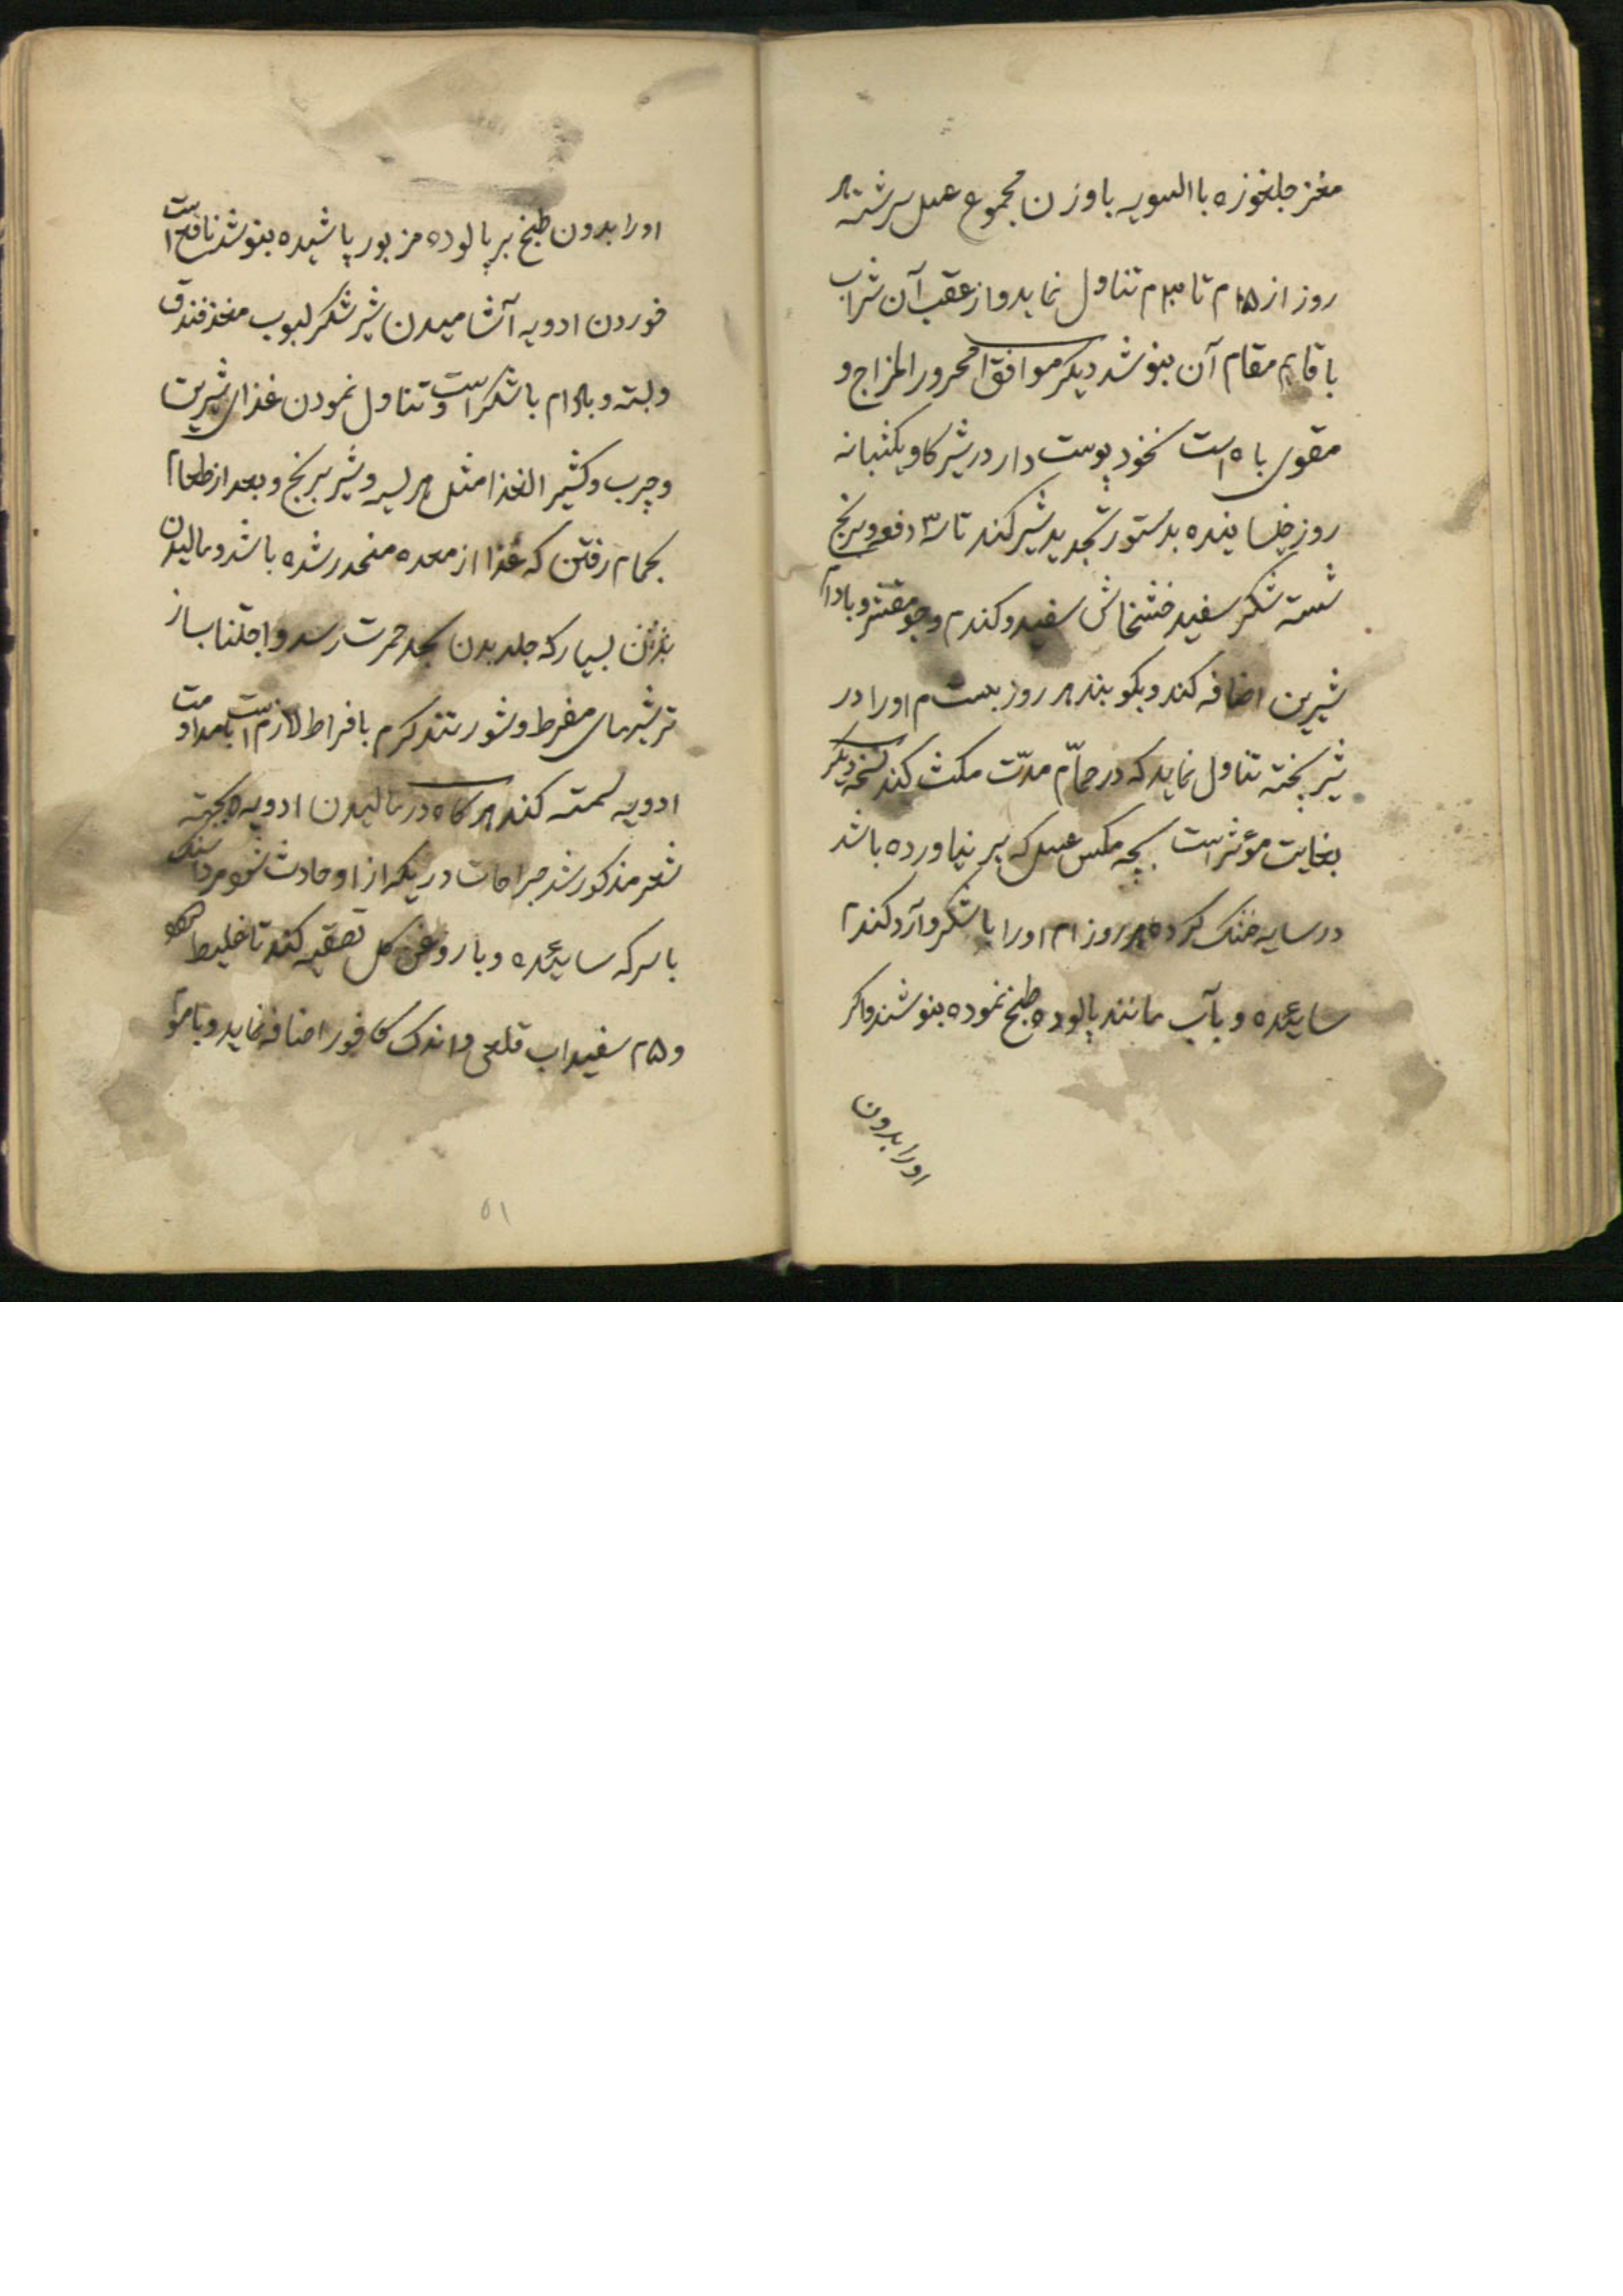 مغز جلغوزه با السویه با وزن مجموع عسل سرشته هر
روز از ۱۵م تا ۳۰م تناول نماید و از عقب آن شراب
یا قایم مقام آن بنوشد دیکر موافق محرور المزاج و
مقوی باه است نخود پوست دار در شیر کاو یکشبانه
روز خیسانیده بدستور تجدید شیر کند تا ۳ دفعه و برنج
شسته شکر سفید خشخاش سفید و کندم و جو مقشر و بادام
شیرین اضافه کند و بکوبند هر روز بیست م او را در
شیر پخته تناول نماید که در حمّام مدّت مکث کند نسخه دیکر
بغایت مؤثر است بچه مکس عسل که پر نیاورده باشد
در سایه خشک کرده هر روز ۱م او را با شکر و آرد کندم
ساییده و بآب مانند پالوده طبخ نموده بنوشند و اکر
او را بدون
او را بدون طبخ بر پالوده مزبور پاشیده بنوشد نافع است
خوردن ادویه آشامیدن شیر شکر لبوب مغز فندق
و پسته و بادام با شکر است و تناول نمودن غذای شیرین
و چرب و کثیر الغذا مثل هریسه و شیر برنج و بعد از طعام
بحمام رفتن که غذا از معده منحدر شده باشد و مالیدن
بدن بسیار که جلد بدن بحد حمرت رسد و اجتناب از
ترشیهای مفرط و شور تند کرم بافراط لازم است بامداومت
ادویه سمنه کند هر کاه در مالیدن ادویه که بجهته
شعر مذکور شد جراحات در یکه از او حادث شود مرداسنک
با سرکه ساییده و با روغن کل تصقیه کند تا غلیظ
و ۵م سفیداب قلعی و اندک کافور اضافه نماید و با موم
۵۱